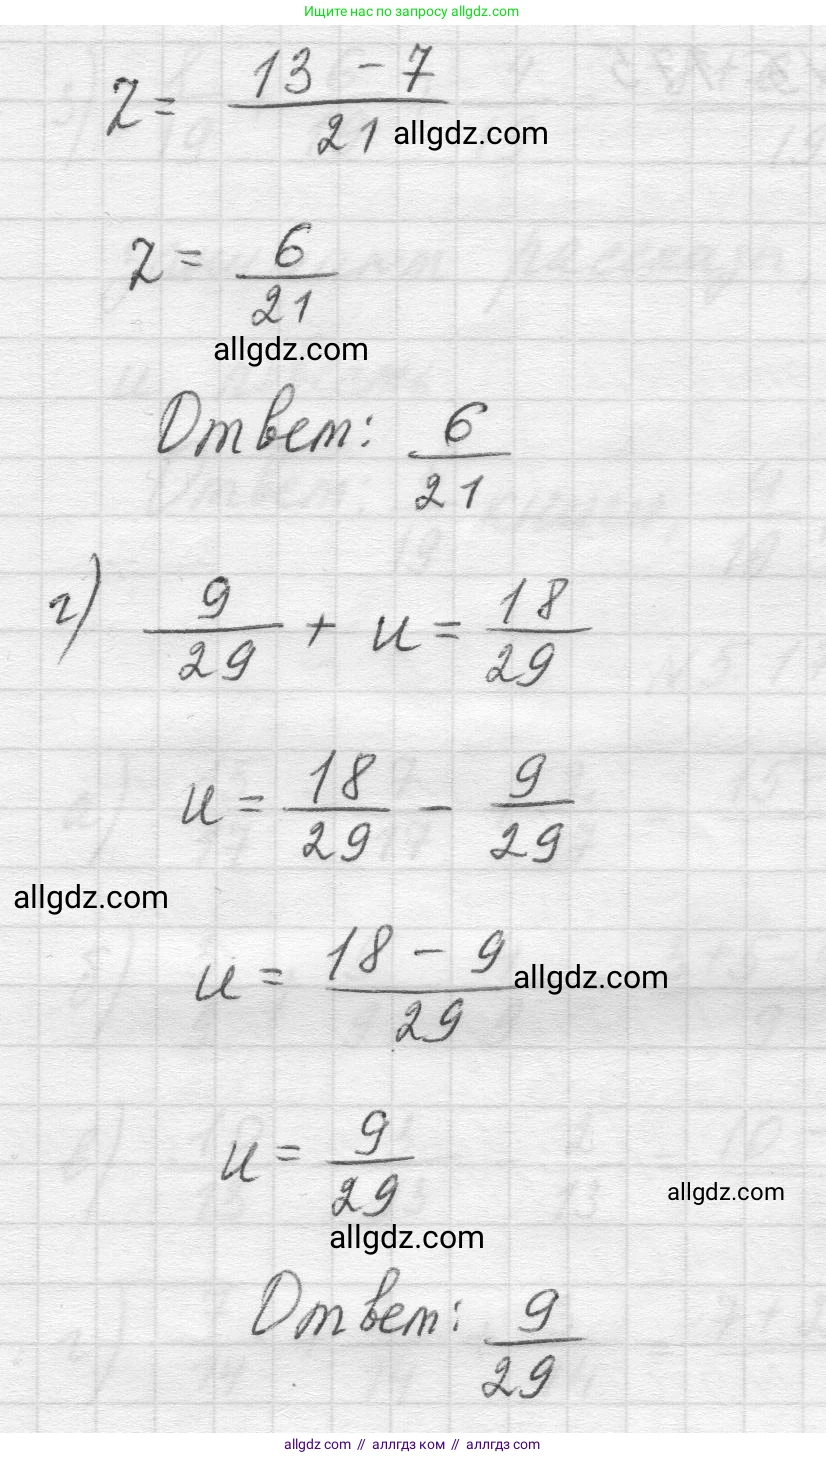 Ищите нас по запросу allgdz.com
z = (13 - 7)/21
allgdz.com
z = 6/21
allgdz.com
Ответ: 6/21
г) 9/29 + и = 18/29
и = 18/29 - 9/29
allgdz.com
и = (18 - 9)/29
allgdz.com
и = 9/29
allgdz.com
allgdz.com
Ответ: 9/29
allgdz.com // аллгдз ком // аллгдз.com